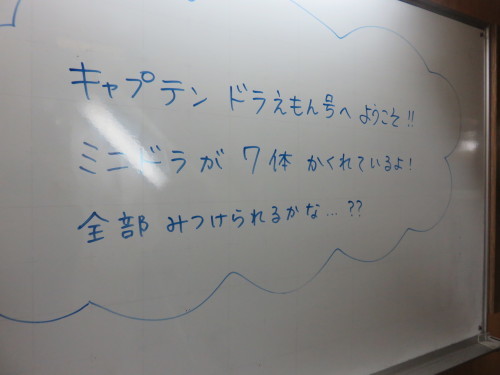 キャプテン ドラえもん号へ ようこそ!!
ミニドラが 7体 かくれているよ!
全部 みつけられるかな...??